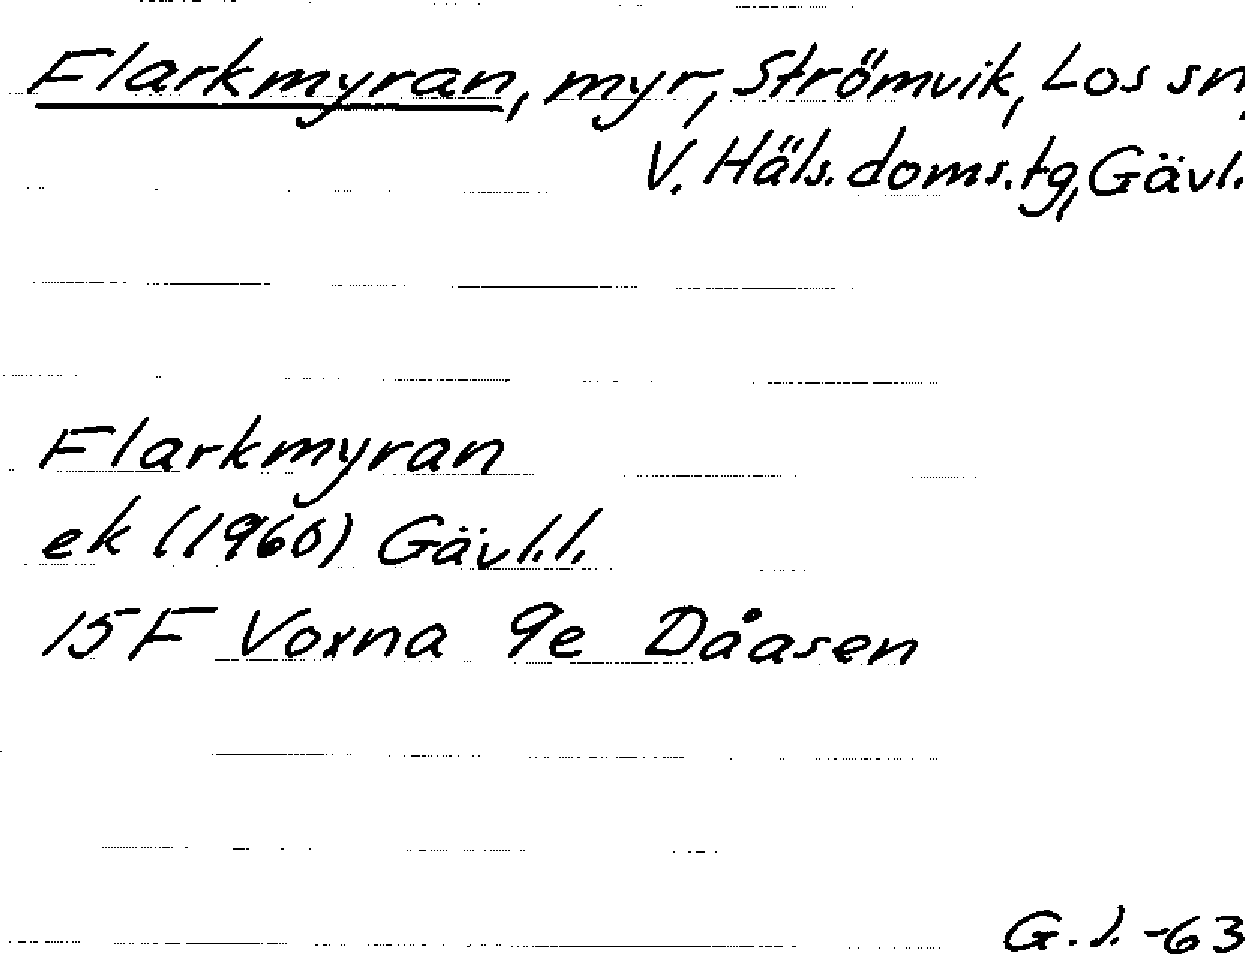 Flarkmyran, myr, Strömvik, Los sn,
V. Häls. doms.tg, Gävl.
Flarkmyran
ek (1960) Gävl.l.
15F Voxna 9e Dåasen
G. J. -63